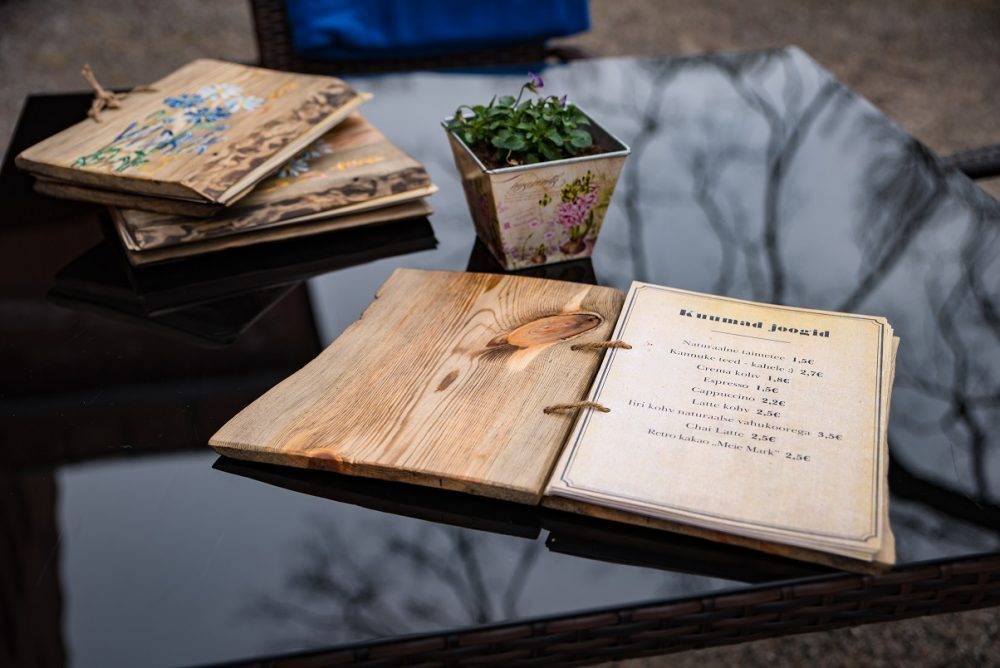 Kuumad joogid
Naturaalne taimetee 1,5€
Kannuke teed - kahele :) 2,7€
Crema kohv 1,8€
Espresso 1,5€
Cappuccino 2,2€
Latte kohv 2,5€
Iiri kohv naturaalse vahukoorega 3,5€
Chai Latte 2,5€
Retro kakao „Meie Mark" 2,5€